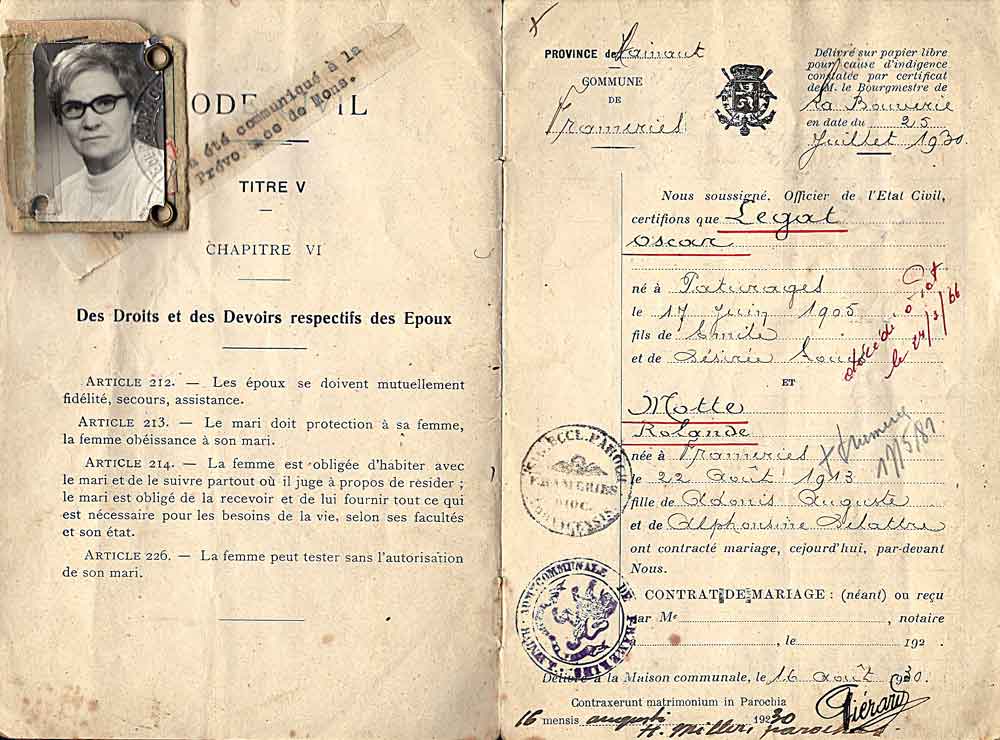 CODE CIVIL
a été communiqué à la
Prévo ance de Mons.
TITRE V
CHAPITRE VI
Des Droits et des Devoirs respectifs des Epoux
ARTICLE 212. — Les époux se doivent mutuellement
fidélité, secours, assistance.
ARTICLE 213. — Le mari doit protection à sa femme,
la femme obéissance à son mari.
ARTICLE 214. — La femme est obligée d'habiter avec
le mari et de le suivre partout où il juge à propos de résider ;
le mari est obligé de la recevoir et de lui fournir tout ce qui
est nécessaire pour les besoins de la vie, selon ses facultés
et son état.
ARTICLE 226. — La femme peut tester sans l'autorisation
de son mari.
PROVINCE de Hainaut
COMMUNE
DE
Frameries
Délivré sur papier libre
pour cause d'indigence
constatée par certificat
de M. le Bourgmestre de
La Bouverie
en date du 25
Juillet 1930.
Nous soussigné, Officier de l'Etat Civil,
certifions que Legat
Oscar
né à Paturages
le 17 Juin 1905
fils de Emile
et de Désirée
décédé à
le 24/3/66
ET
Motte
Rolande
née à Frameries
le 22 Août 1913
17/5/81
fille de Adonis Auguste
et de Alphonsine Delattre
ont contracté mariage, cejourd'hui, par-devant
Nous.
CONTRAT DE MARIAGE : (néant) ou reçu
par Me , notaire
, le 192
Délivré à la Maison communale, le 16 août 1930.
Contraxerunt matrimonium in Parochia
16 mensis augusti 1930
Piérard